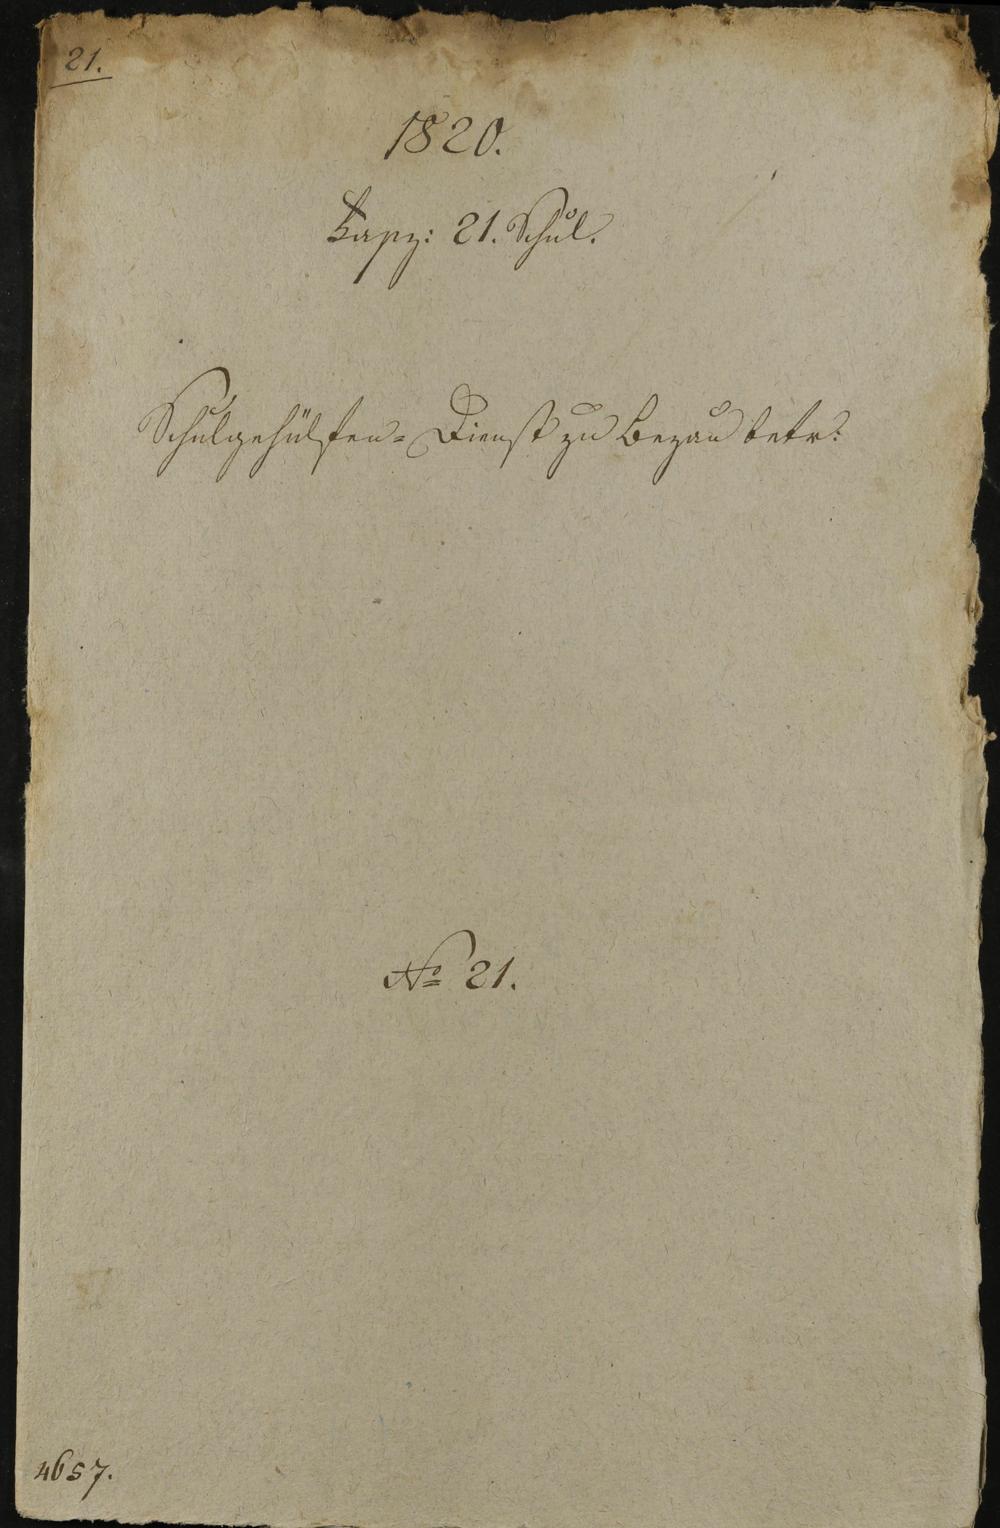 21.
1820.
Fasz: 21. Schul.
Schulgehülfen=Dienst zu Bezau betr:
No 21.
4657.